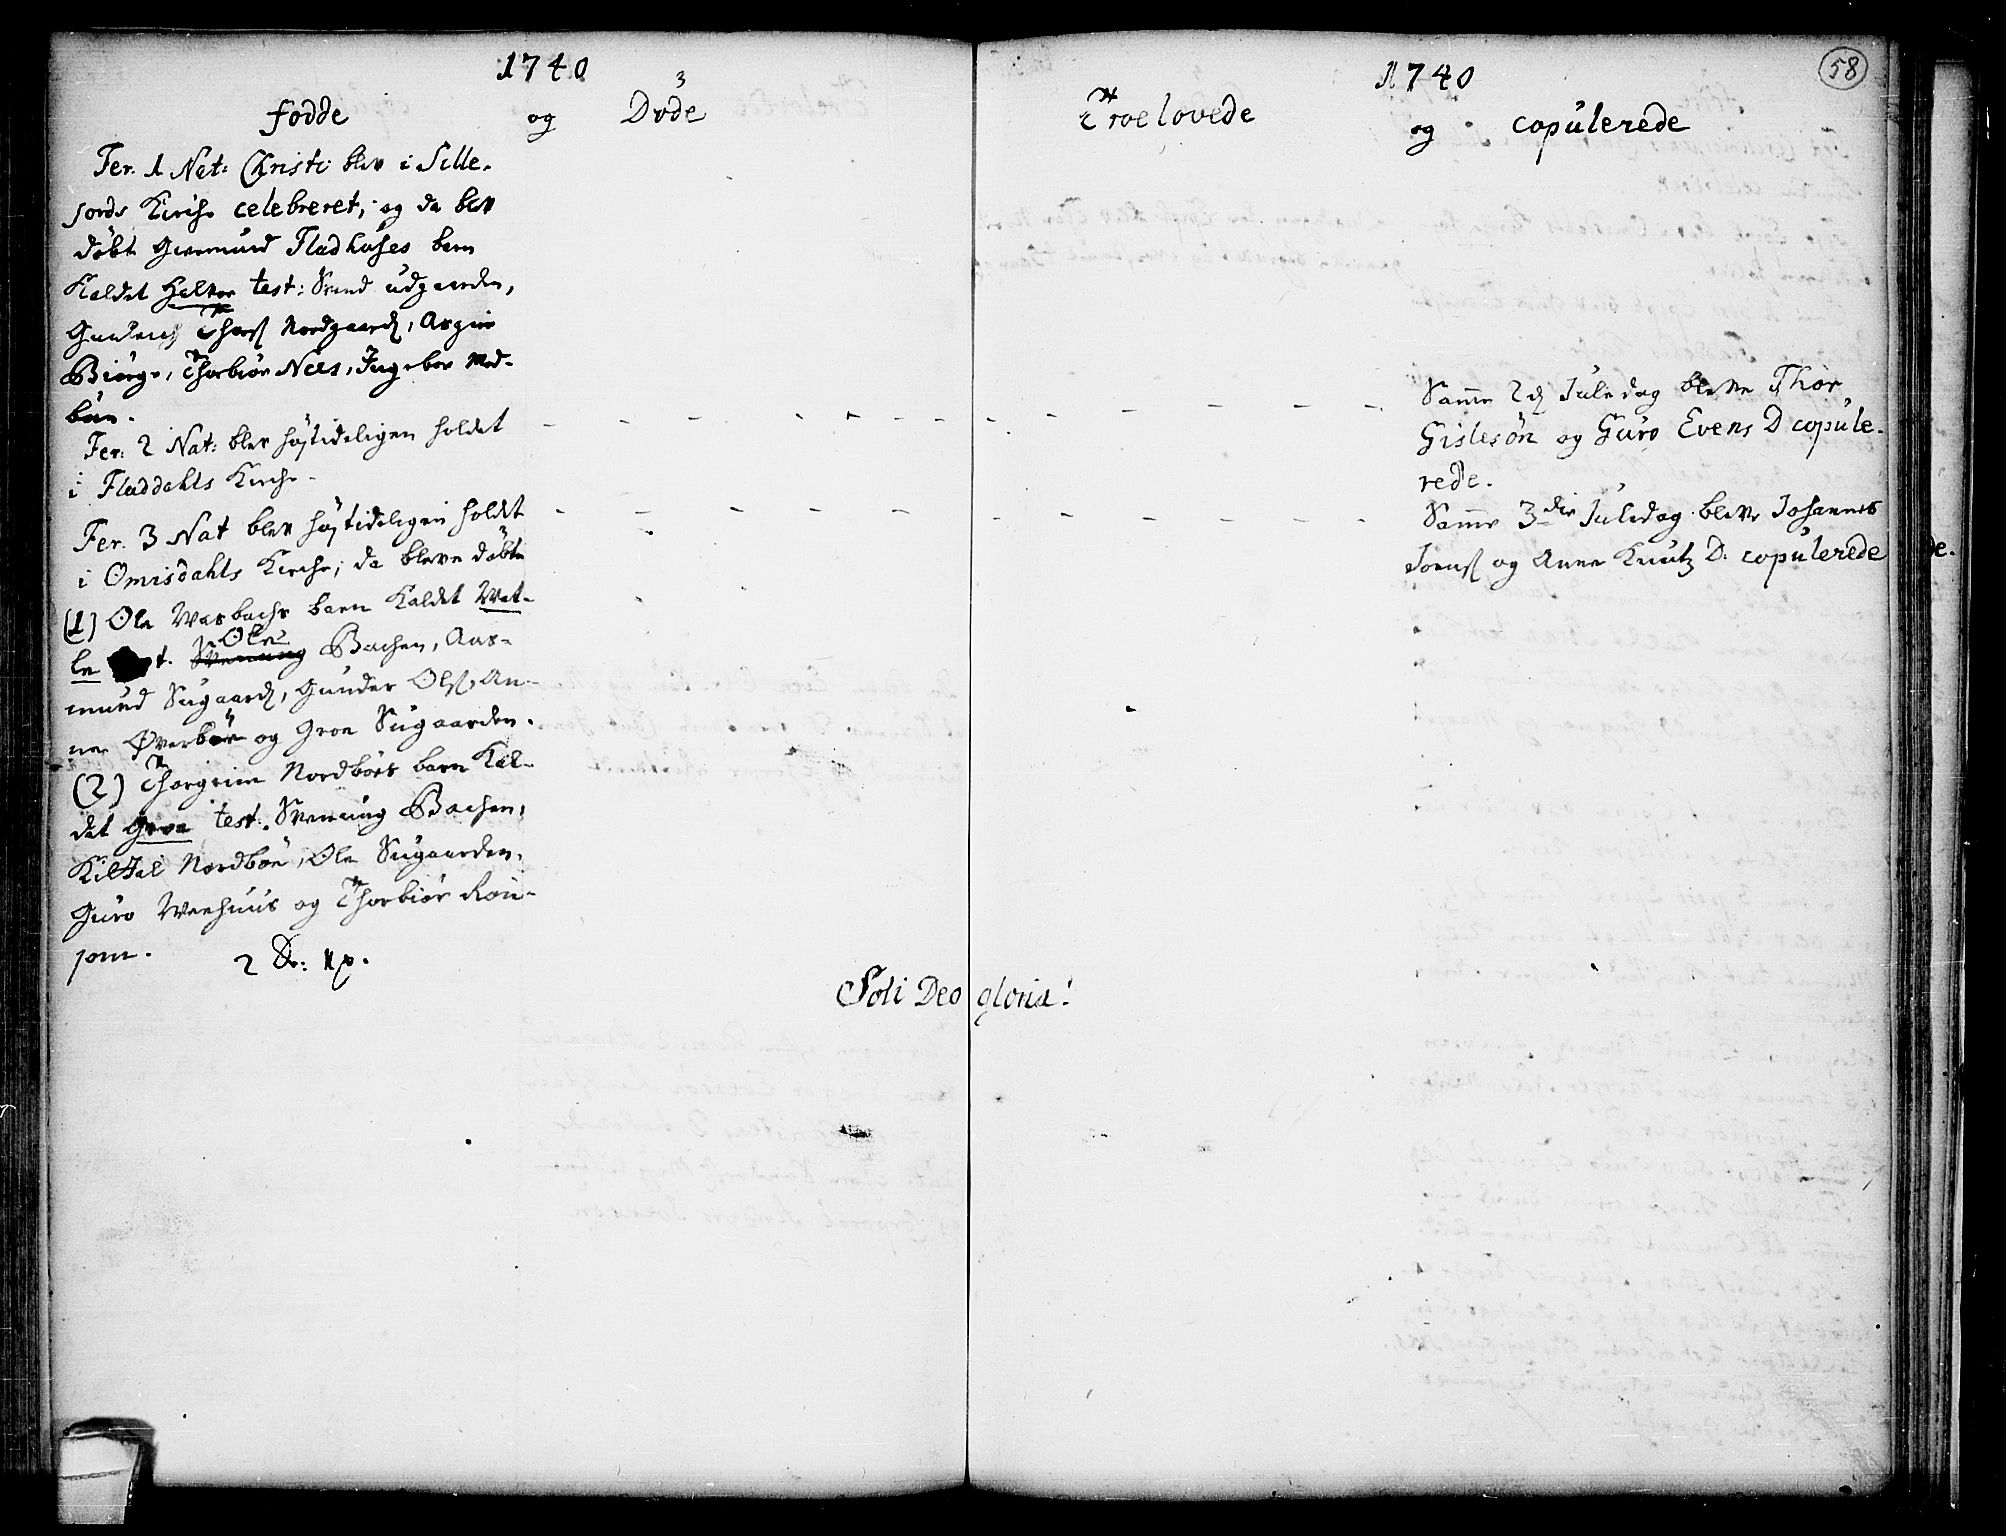 1740
fødde og Døde
Fer. 1 Nat: Christi blev i Sille-
jords Kirche celebreret, og da blev
døbt Giermund Fladhuses barn
Kaldet Halvor test: Svend udgaarden,
Thors Nordgaard, Asgier
Biørge, Thorbiør Nees, Ingebor Med-
büe.
Fer. 2 Nat: blev høytideligen holdet
i Fladdahls Kirche.
Fer. 3 Nat blev høytideligen holdet
i Omisdahls Kirche; da bleve døbte
(1) Ole Wasbachs barn Kaldet Wet-
le t. Svenung Ole Bachen, Aas-
mund Sugaard, Gunder Ols, An-
ne Øverbøe og Groe Sugaarden.
(2) Thorgrim Nordbøes barn Kal-
det Groe test. Svenung Bachen,
Kittel Nordbøe, Ole Sugaarden,
Guro Weehuus og Thorbiør Røn-
jom. 2 Dr: Np.
1740 58
Troelovede og copulerede
Samme 2d Juledag bleve Thor
Gislesøn og Guro Evens D copule-
rede.
Samme 3die Juledag bleve Johannes
Joens og Anne Knutz D: copulerede
de.
Soli Deo gloria!